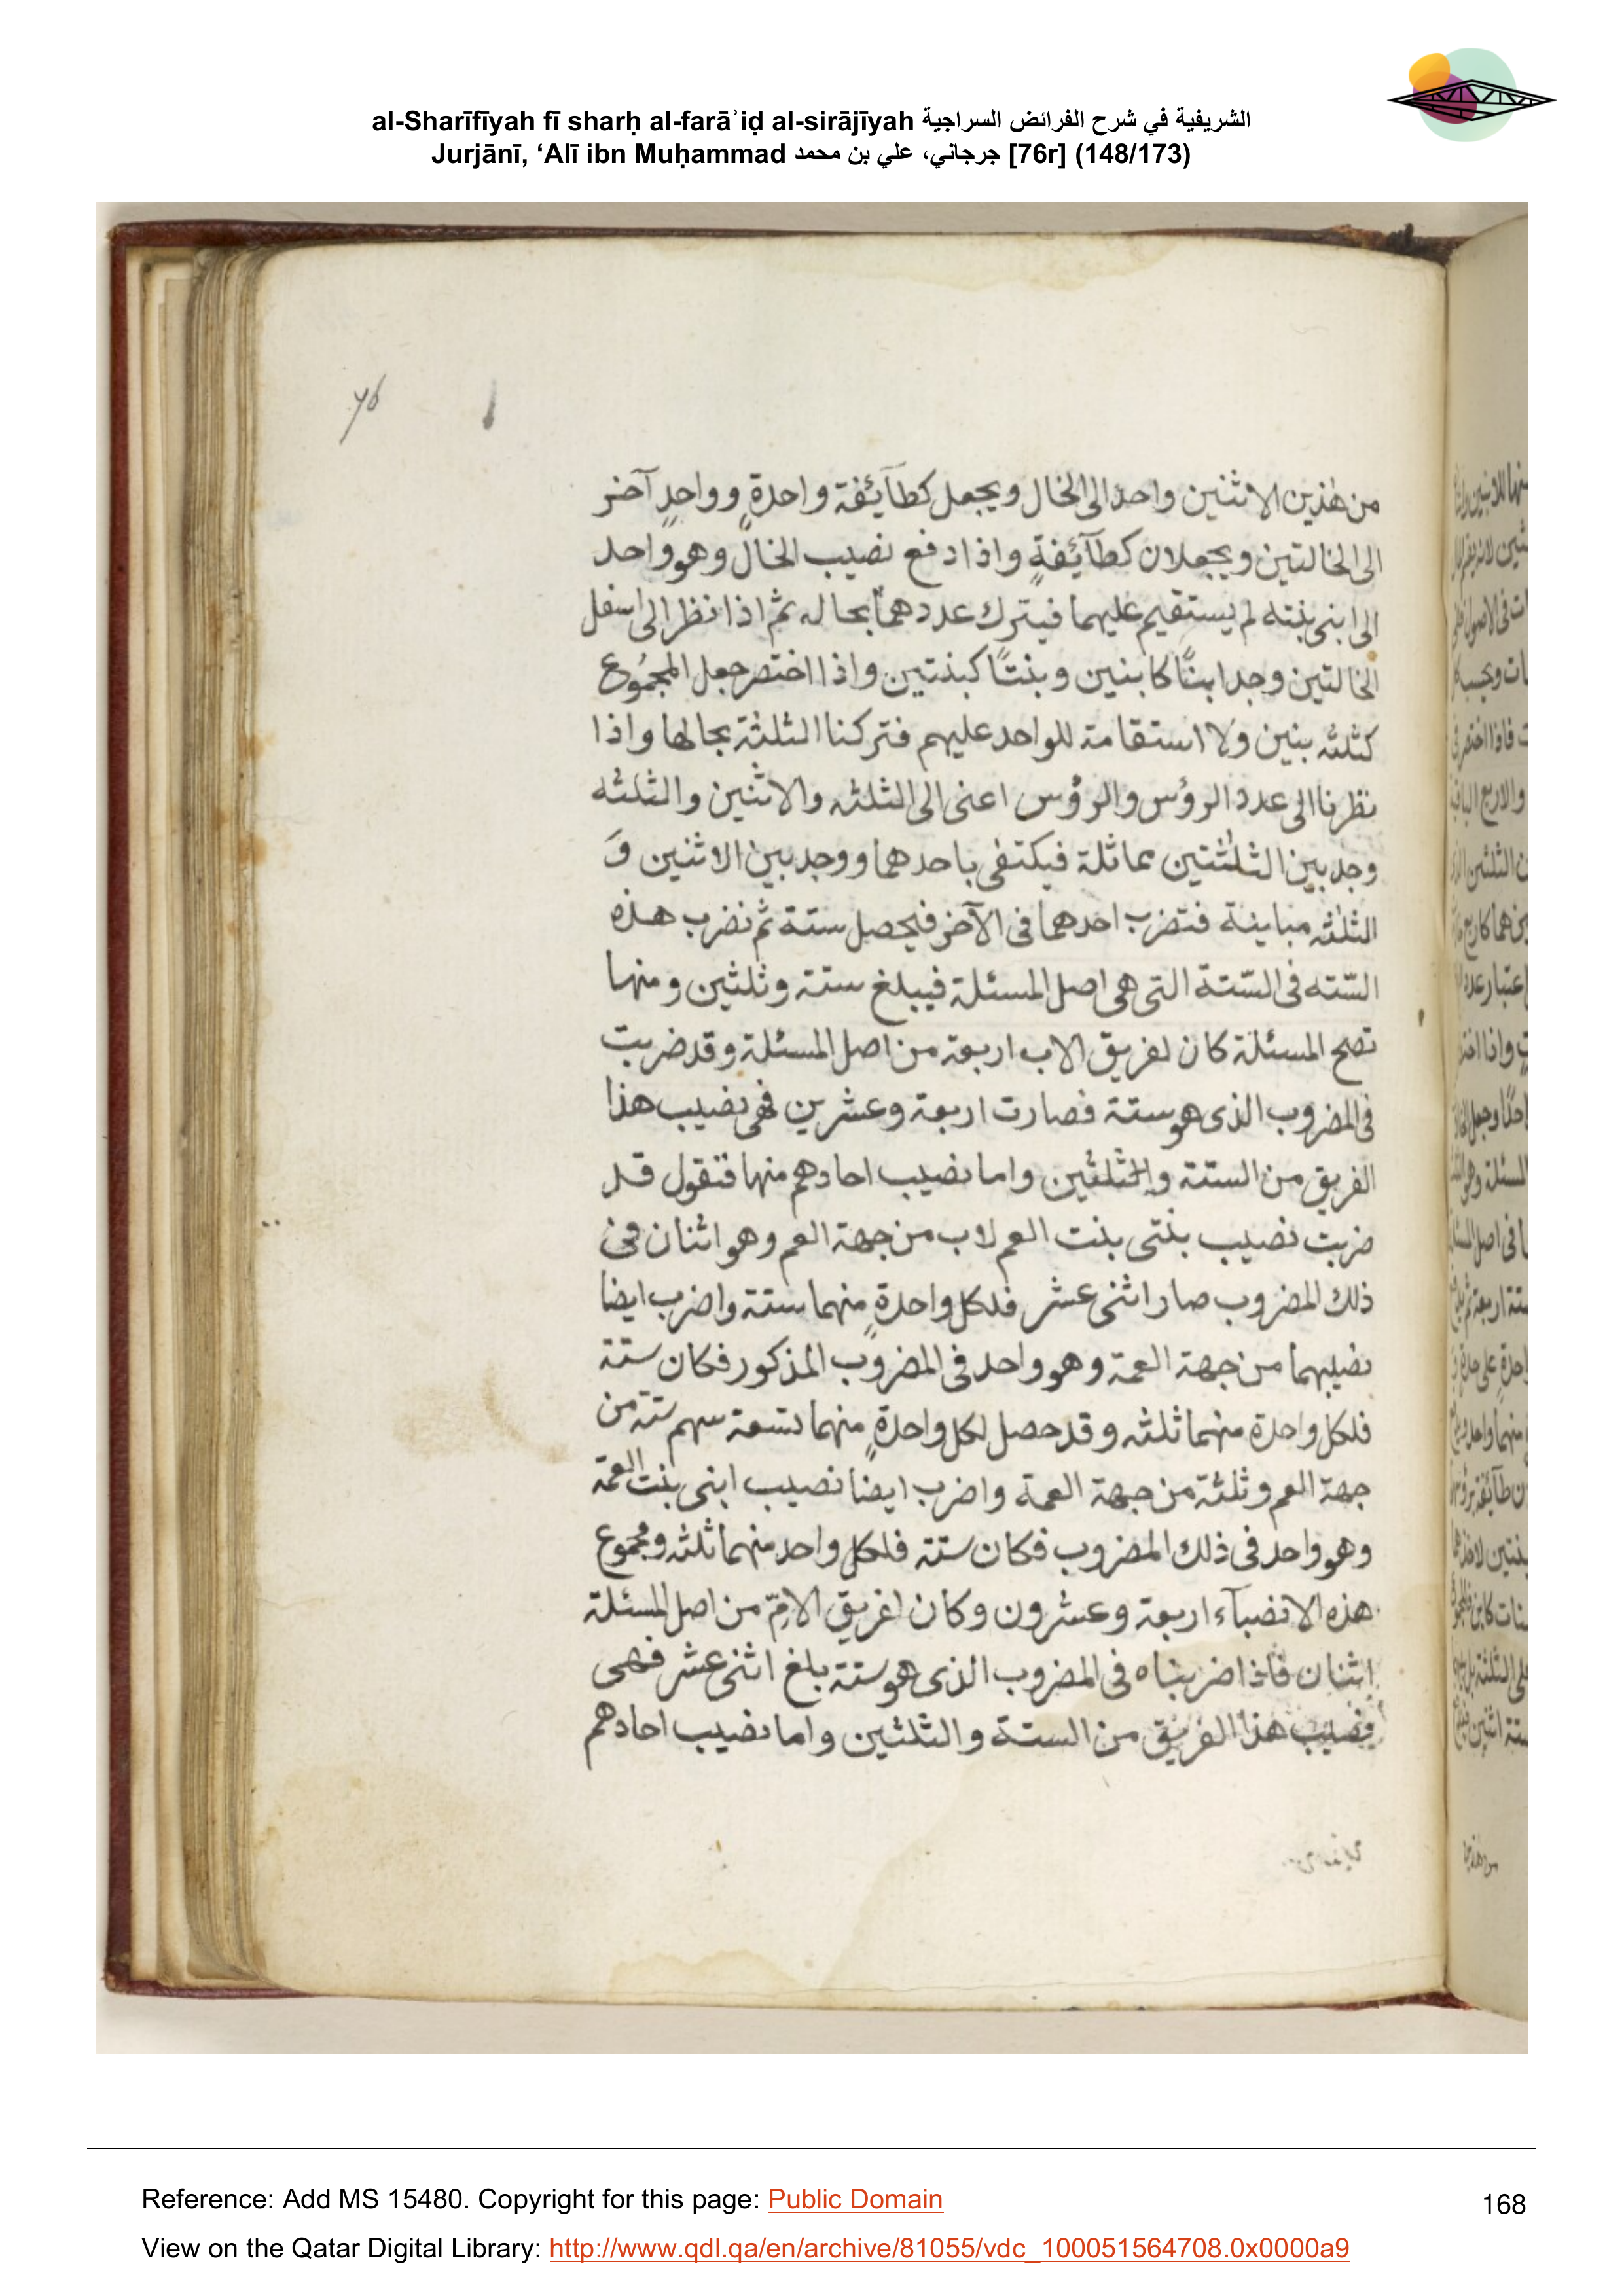 al-Sharīfīyah fī sharḥ al-farāʾiḍ al-sirājīyah الشريفية في شرح الفرائض السراجية
Jurjānī, ‘Alī ibn Muḥammad جرجاني، علي بن محمد [76r] (148/173)
76
من هذين الاثنين واحد الى الخال ويجعل كطآئفة واحدةٍ وواحدٍ آخر
الى الخالتين ويجعلان كطآئفةٍ واذا دفع نصيب الخال وهو واحد
الى ابنى بنته لم يستقيم عليهما فيترك عددهما بحاله ثم اذا نظر الى اسفل
الخالتين وجد ابنًا كابنين وبنتًا كبنتين واذا اختصر جعل المجموع
كثلثه بنين ولا استقامة للواحد عليهم فتركنا الثلثة بحالها واذا
نظرنا الى عدد الرؤس والرؤس اعنى الى الثلثه والاثنين والثلثه
وجد بين الثلثتين مماثلة فيكتفى باحدهما ووجد بين الاثنين وَ
الثلثه مباينة فتضرب احدهما فى الآخر فيحصل ستة ثم نضرب هذه
السّته فى السّتة التى هى اصل المسئلة فيبلغ ستة وثلثين ومنها
تصح المسئلة كان لفريق الاب اربعة من اصل المسئلة وقد ضربت
فى المضروب الذى هو ستة فصارت اربعة وعشرين فهى نصيب هذا
الفريق من الستة والثلثين واما نصيب احادهم منها فنقول قد
ضربت نصيب بنتى بنت العم لاب من جهة العم وهو اثنان فى
ذلك المضروب صار اثنى عشر فلكل واحدةٍ منهما ستة واضرب ايضا
نصيبهما من جهة العمة وهو واحد فى المضروب المذكور فكان ستة
فلكل واحدة منهما ثلثه وقد حصل لكل واحدةٍ منهما تسعة سهم ستة من
جهة العم وثلثة من جهة العمة واضرب ايضا نصيب ابنى بنت العمة
وهو واحد فى ذلك المضروب فكان ستة فلكل واحد منهما ثلثه ومجموع
هذه الانصبآء اربعة وعشرون وكان لفريق الامّ من اصل المسئلة
اثنان فاذا ضربناه فى المضروب الذى هو ستة بلغ اثنى عشر فهى
نصيب هذا الفريق من الستة والثلثين واما نصيب احادهم
Reference: Add MS 15480. Copyright for this page: Public Domain
168
View on the Qatar Digital Library: http://www.qdl.qa/en/archive/81055/vdc_100051564708.0x0000a9